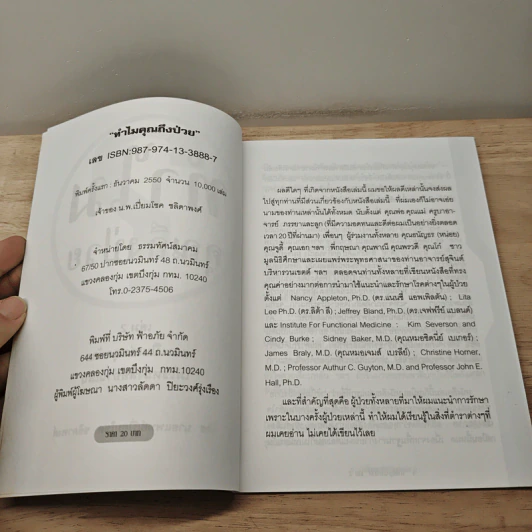 "ทำไมคุณถึงป่วย"
เลข ISBN:987-974-13-3888-7
พิมพ์ครั้งแรก : ธันวาคม 2550 จำนวน 10,000 เล่ม
เจ้าของ น.พ.เปี่ยมโชค ชลิดาพงศ์
จำหน่ายโดย ธรรมทัศน์สมาคม
67/50 ปากซอยนวมินทร์ 48 ถ.นวมินทร์
แขวงคลองกุ่ม เขตบึงกุ่ม กทม. 10240
โทร.0-2375-4506
พิมพ์ที่ บริษัท ฟ้าอภัย จำกัด
644 ซอยนวมินทร์ 44 ถ.นวมินทร์
แขวงคลองกุ่ม เขตบึงกุ่ม กทม.10240
ผู้พิมพ์ผู้โฆษณา นางสาวลัดดา ปิยะวงศ์รุ่งเรือง
ราคา 20 บาท
ผลดีใดๆ ที่เกิดจากหนังสือเล่มนี้ ผมขอให้ผลดีเหล่านั้นจงส่งผล
ไปสู่ทุกท่านที่มีส่วนเกี่ยวข้องกับหนังสือเล่มนี้ ที่ผมเองก็ไม่อาจเอ่ย
นามของท่านเหล่านั้นได้ทั้งหมด นับตั้งแต่ คุณพ่อ คุณแม่ ครูบาอา-
จารย์ ภรรยาและลูก (ที่มีความอดทนและดีต่อผมเป็นอย่างยิ่งตลอด
เวลา 20 ปีที่ผ่านมา) เพื่อนๆ ผู้ร่วมงานทั้งหลาย คุณธนัญธร (หน่อย)
คุณจูดี้ คุณเอก ฯลฯ พี่กฤษณา คุณพาณี คุณพรวดี คุณโก้ ชาว
มูลนิธิศึกษาและเผยแพร่พระพุทธศาสนาของท่านอาจารย์สุจินต์
บริหารวนเขตต์ ฯลฯ ตลอดจนท่านทั้งหลายที่เขียนหนังสือที่ทรง
คุณค่าอย่างมากต่อการนำมาใช้แนะนำและรักษาโรคต่างๆในผู้ป่วย
ตั้งแต่ Nancy Appleton, Ph.D. (ดร.แนนซี่ แอพเพิลตัน) ; Lita
Lee Ph.D. (ดร.ลิต้า ลี) ; Jeffrey Bland, Ph.D. (ดร.เจฟฟรีย์ แบลนด์)
และ Institute For Functional Medicine : Kim Severson and
Cindy Burke : Sidney Baker, M.D. (คุณหมอซิดนี่ย์ เบเกอร์) ;
James Braly, M.D. (คุณหมอเจมส์ เบรลีย์) ; Christine Horner,
M.D. ; Professor Authur C. Guyton, M.D. and Professor John E.
Hall, Ph.D.
และที่สำคัญที่สุดคือ ผู้ป่วยทั้งหลายที่มาให้ผมแนะนำการรักษา
เพราะในบางครั้งผู้ป่วยเหล่านี้ ทำให้ผมได้เรียนรู้ในสิ่งที่ตำราต่างๆที่
ผมเคยอ่าน ไม่เคยได้เขียนไว้เลย